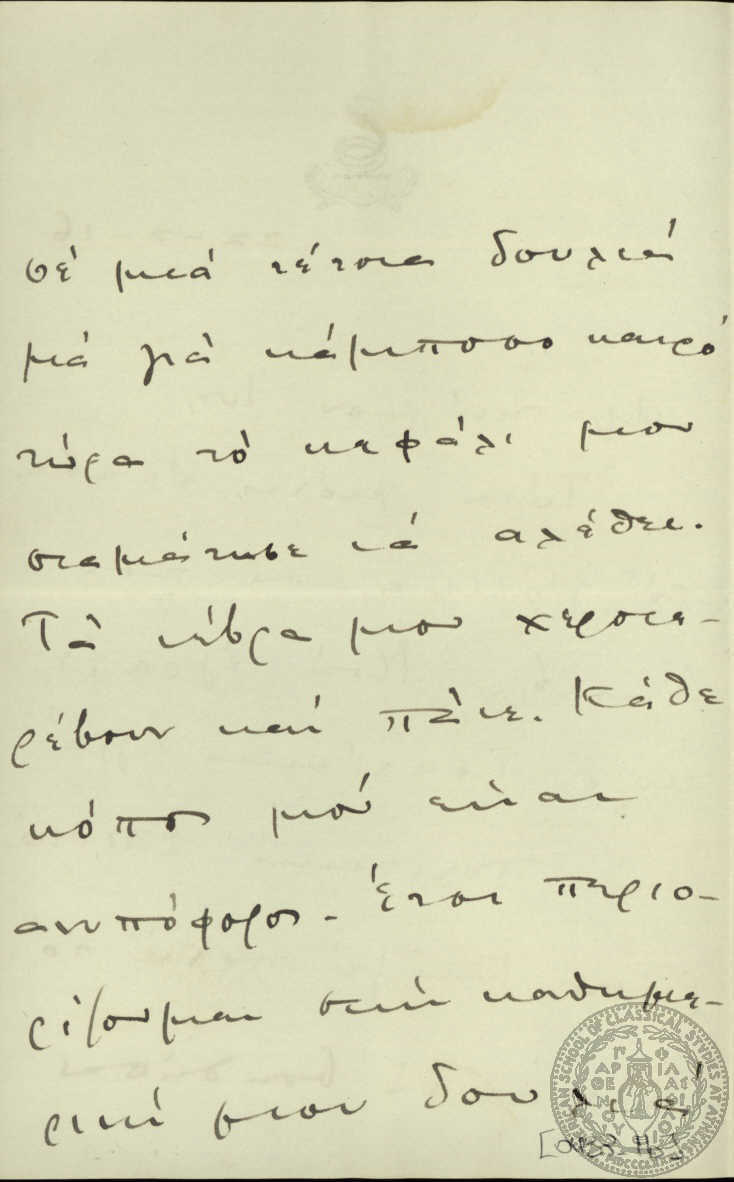 σέ μιά τέτοια δουλιά
μά γιά κάμποσο καιρό
τώρα τό κεφάλι μου
σταμάτησε νά αλέθει.
Τά νέβρα μου χεροτε-
ρέβουν καί πᾶνε. Κάθε
κόπος μοῦ εἶναι
ανυπόφορος. Έτσι περιο-
ρίζουμαι στήν καθημε-
ρινή μου δουλιά
AMERICAN SCHOOL OF CLASSICAL STUDIES AT ATHENS